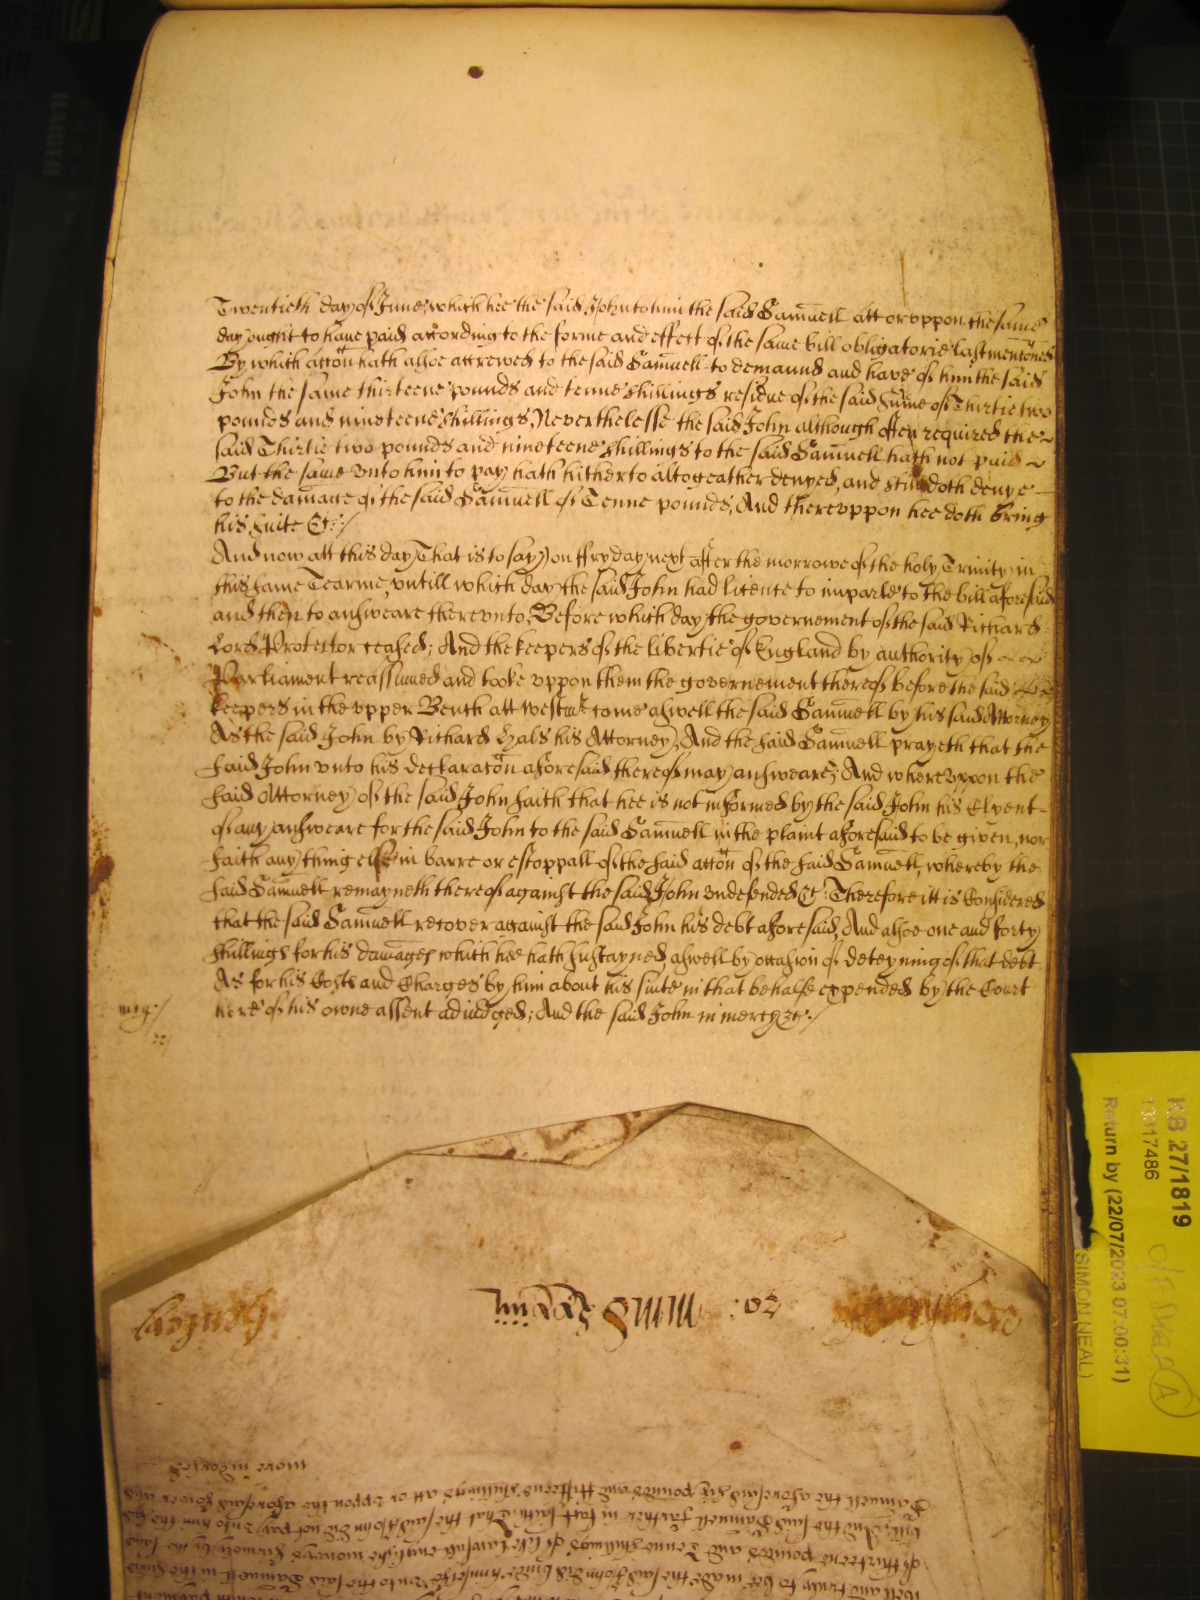 Twentieth day of June, which hee the said John to him the said Samuell att or vppon the same
day ought to haue paid according to the forme and effect of the same bill obligatorie last menc̄oned
By which acc̄on hath alsoe accrewed to the said Samuell to demaund and have of him the said
John the same thirteene pounds and tenne shillings residue of the said sum̄e of Thirtie two
pounds and nineteene shillings, Neverthelesse the said John although often required the
said Thirtie two pounds and nineteene shillings to the said Samuell hath not paid
But the same vnto him to pay hath hitherto altogeather denyed, and still doth denye
to the damage of the said Samuell of Tenne pounds, And therevppon hee doth bring
his suite &c:/
And now att this day (That is to say) on ffryday next after the morrowe of the holy Trinity in
this same Tearme, vntill which day the said John had licence to imparle to the bill aforesaid
and then to answeare therevnto, Before which day the governement of the said Richard
Lord Protector ceased; And the keepers of the libertie of England by authority of
Parliament reassumed and tooke vppon them the governement thereof before the said
keepers in the vpper Bench att Westmr come aswell the said Samuell by his said Attorney
As the said John by Richard Hals his Attorney; And the said Samuell prayeth that the
said John vnto his declarac̄on aforesaid thereof may answeare; And wherevppon the
said Attorney of the said John saith that hee is not informed by the said John his Clyent
of any answeare for the said John to the said Samuell in the plaint aforesaid to be given, nor
saith any thing else in barre or estoppall of the said acc̄on of the said Samuell, whereby the
said Samuell remayneth thereof against the said John vndefended &c: Therefore itt is Considered
that the said Samuell recover against the said John his debt aforesaid, And alsoe one and forty
shillings for his damages which hee hath sustayned, aswell by occasion of deteyning of that debt
As for his Costs and Charges by him about his suite in that behalfe expended by the Court
mcy:/ here of his owne assent adiudged; And the said John in mercy &c:/
more indorsed
Samuell the aforesaid six pounds and fifteene shillings att or vppon the aforesaid
bill; And the said Samuell further in fact saith, That the said John did not pay vnto him the
of thirteene pounds and Tenne shillings of like lawfull english moneys
well and truly to bee made the said John did binde himselfe vnto the said Samuell in the
KB 27/1819
13317486
Return by (22/07/2023 07:00:31)
SIMON NEAL)
A